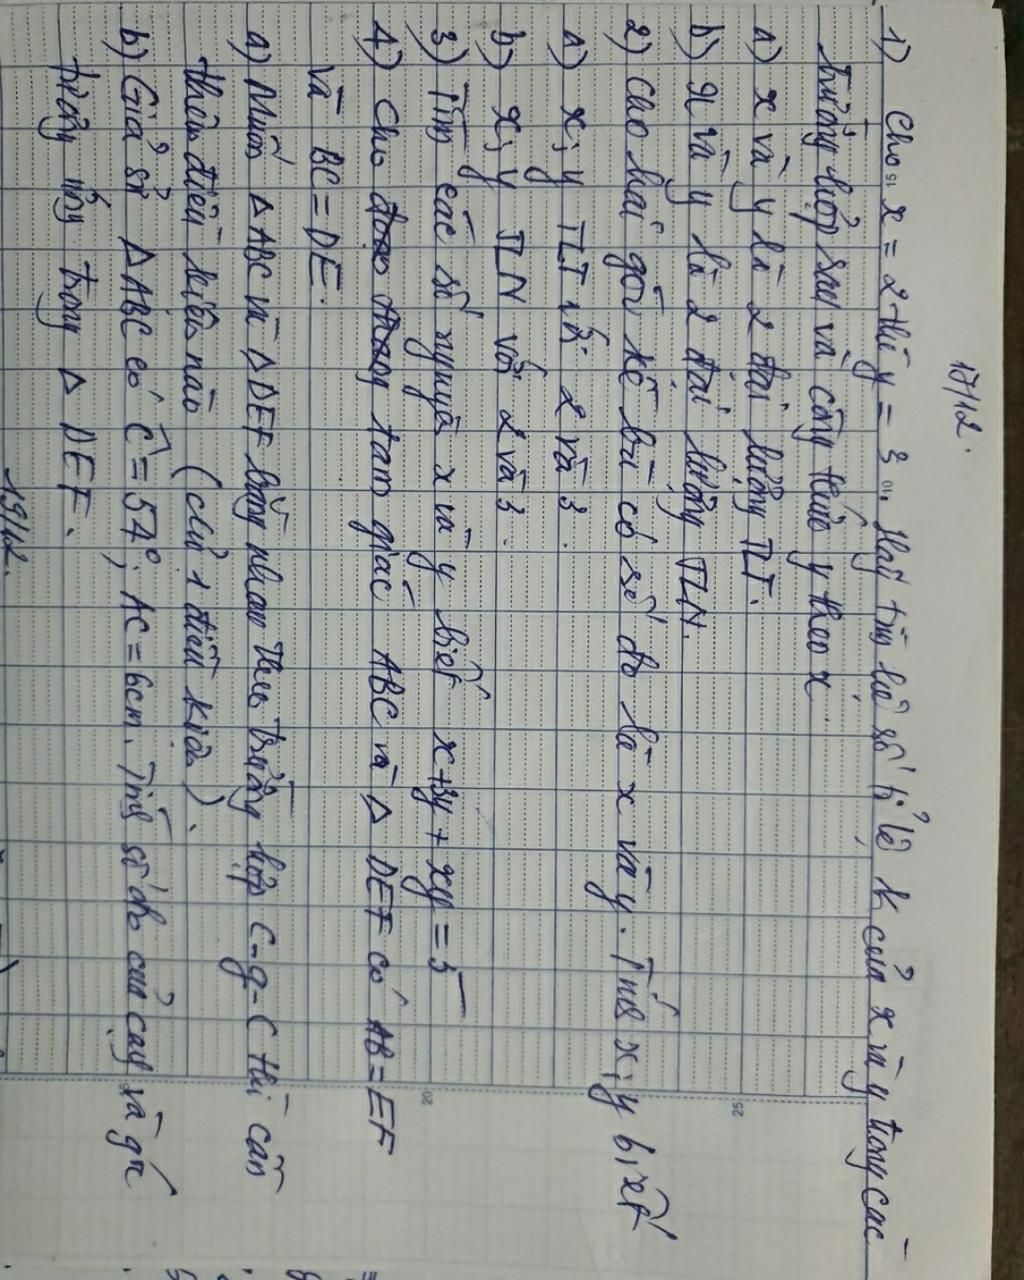 17/12.
1) Cho x = 2 thì y = 3. Hãy tìm hệ số tỉ lệ k của x và y trong các
trường hợp sau và công thức y theo x
a) x và y là 2 đại lượng TLT.
b) x và y là 2 đại lượng TLN.
2) Cho hai góc kề bù có số đo là x và y. Tính x; y biết
a) x; y TLT với 2 và 3.
b) x; y TLN với 2 và 3.
3) Tìm các số nguyên x và y biết x+3y + xy = 5
4) Cho tam giác ABC và △ DEF có AB = EF
và BC = DE.
a) Muốn △ABC và △DEF bằng nhau theo trường hợp c-g-c thì cần
thêm điều kiện nào (chỉ 1 điều kiện).
b) Giả sử △ABC có Ĉ = 57°; AC = 6cm. Tính số đo của cạnh và góc
tương ứng trong △ DEF.
19/12.
20
25